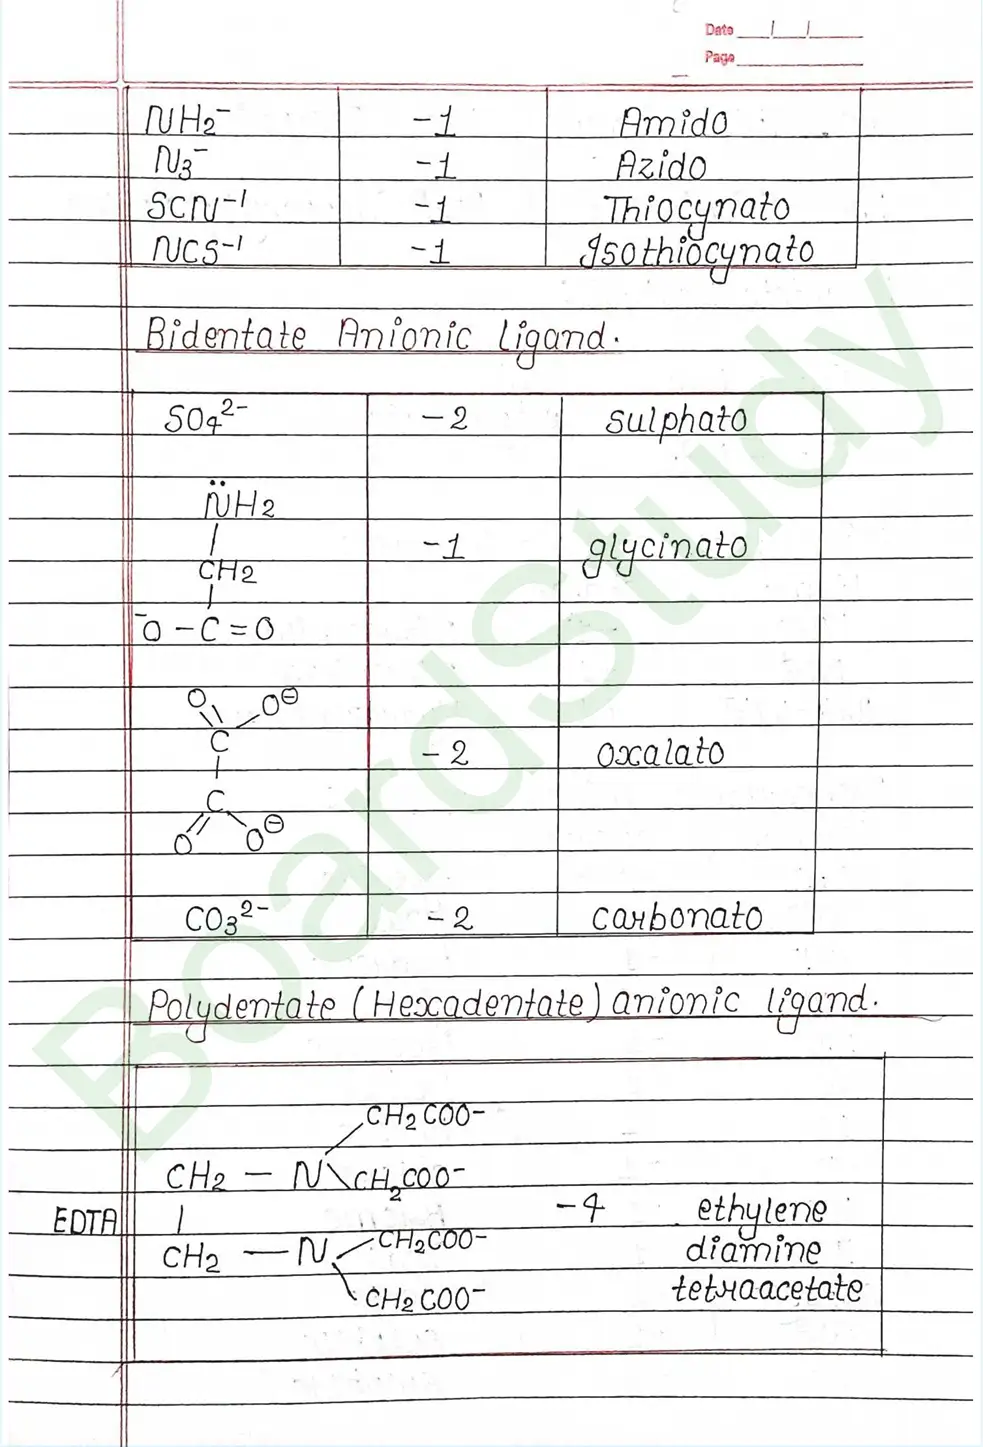 Date __/__/__
Page
NH2⁻ -1 Amido
N3⁻ -1 Azido
SCN⁻¹ -1 Thiocynato
NCS⁻¹ -1 Isothiocynato
Bidentate Anionic ligand.
SO4²⁻ -2 sulphato
N̈H2
|
CH2 -1 glycinato
|
⁻O - C = O
O O⊖
C
| -2 oxalato
C
O O⊖
CO3²⁻ -2 carbonato
Polydentate (Hexadentate) anionic ligand.
CH2COO⁻
CH2 — N CH2COO⁻
EDTA | -4 ethylene
CH2 — N CH2COO⁻ diamine
CH2COO⁻ tetraacetate
BoardStudy